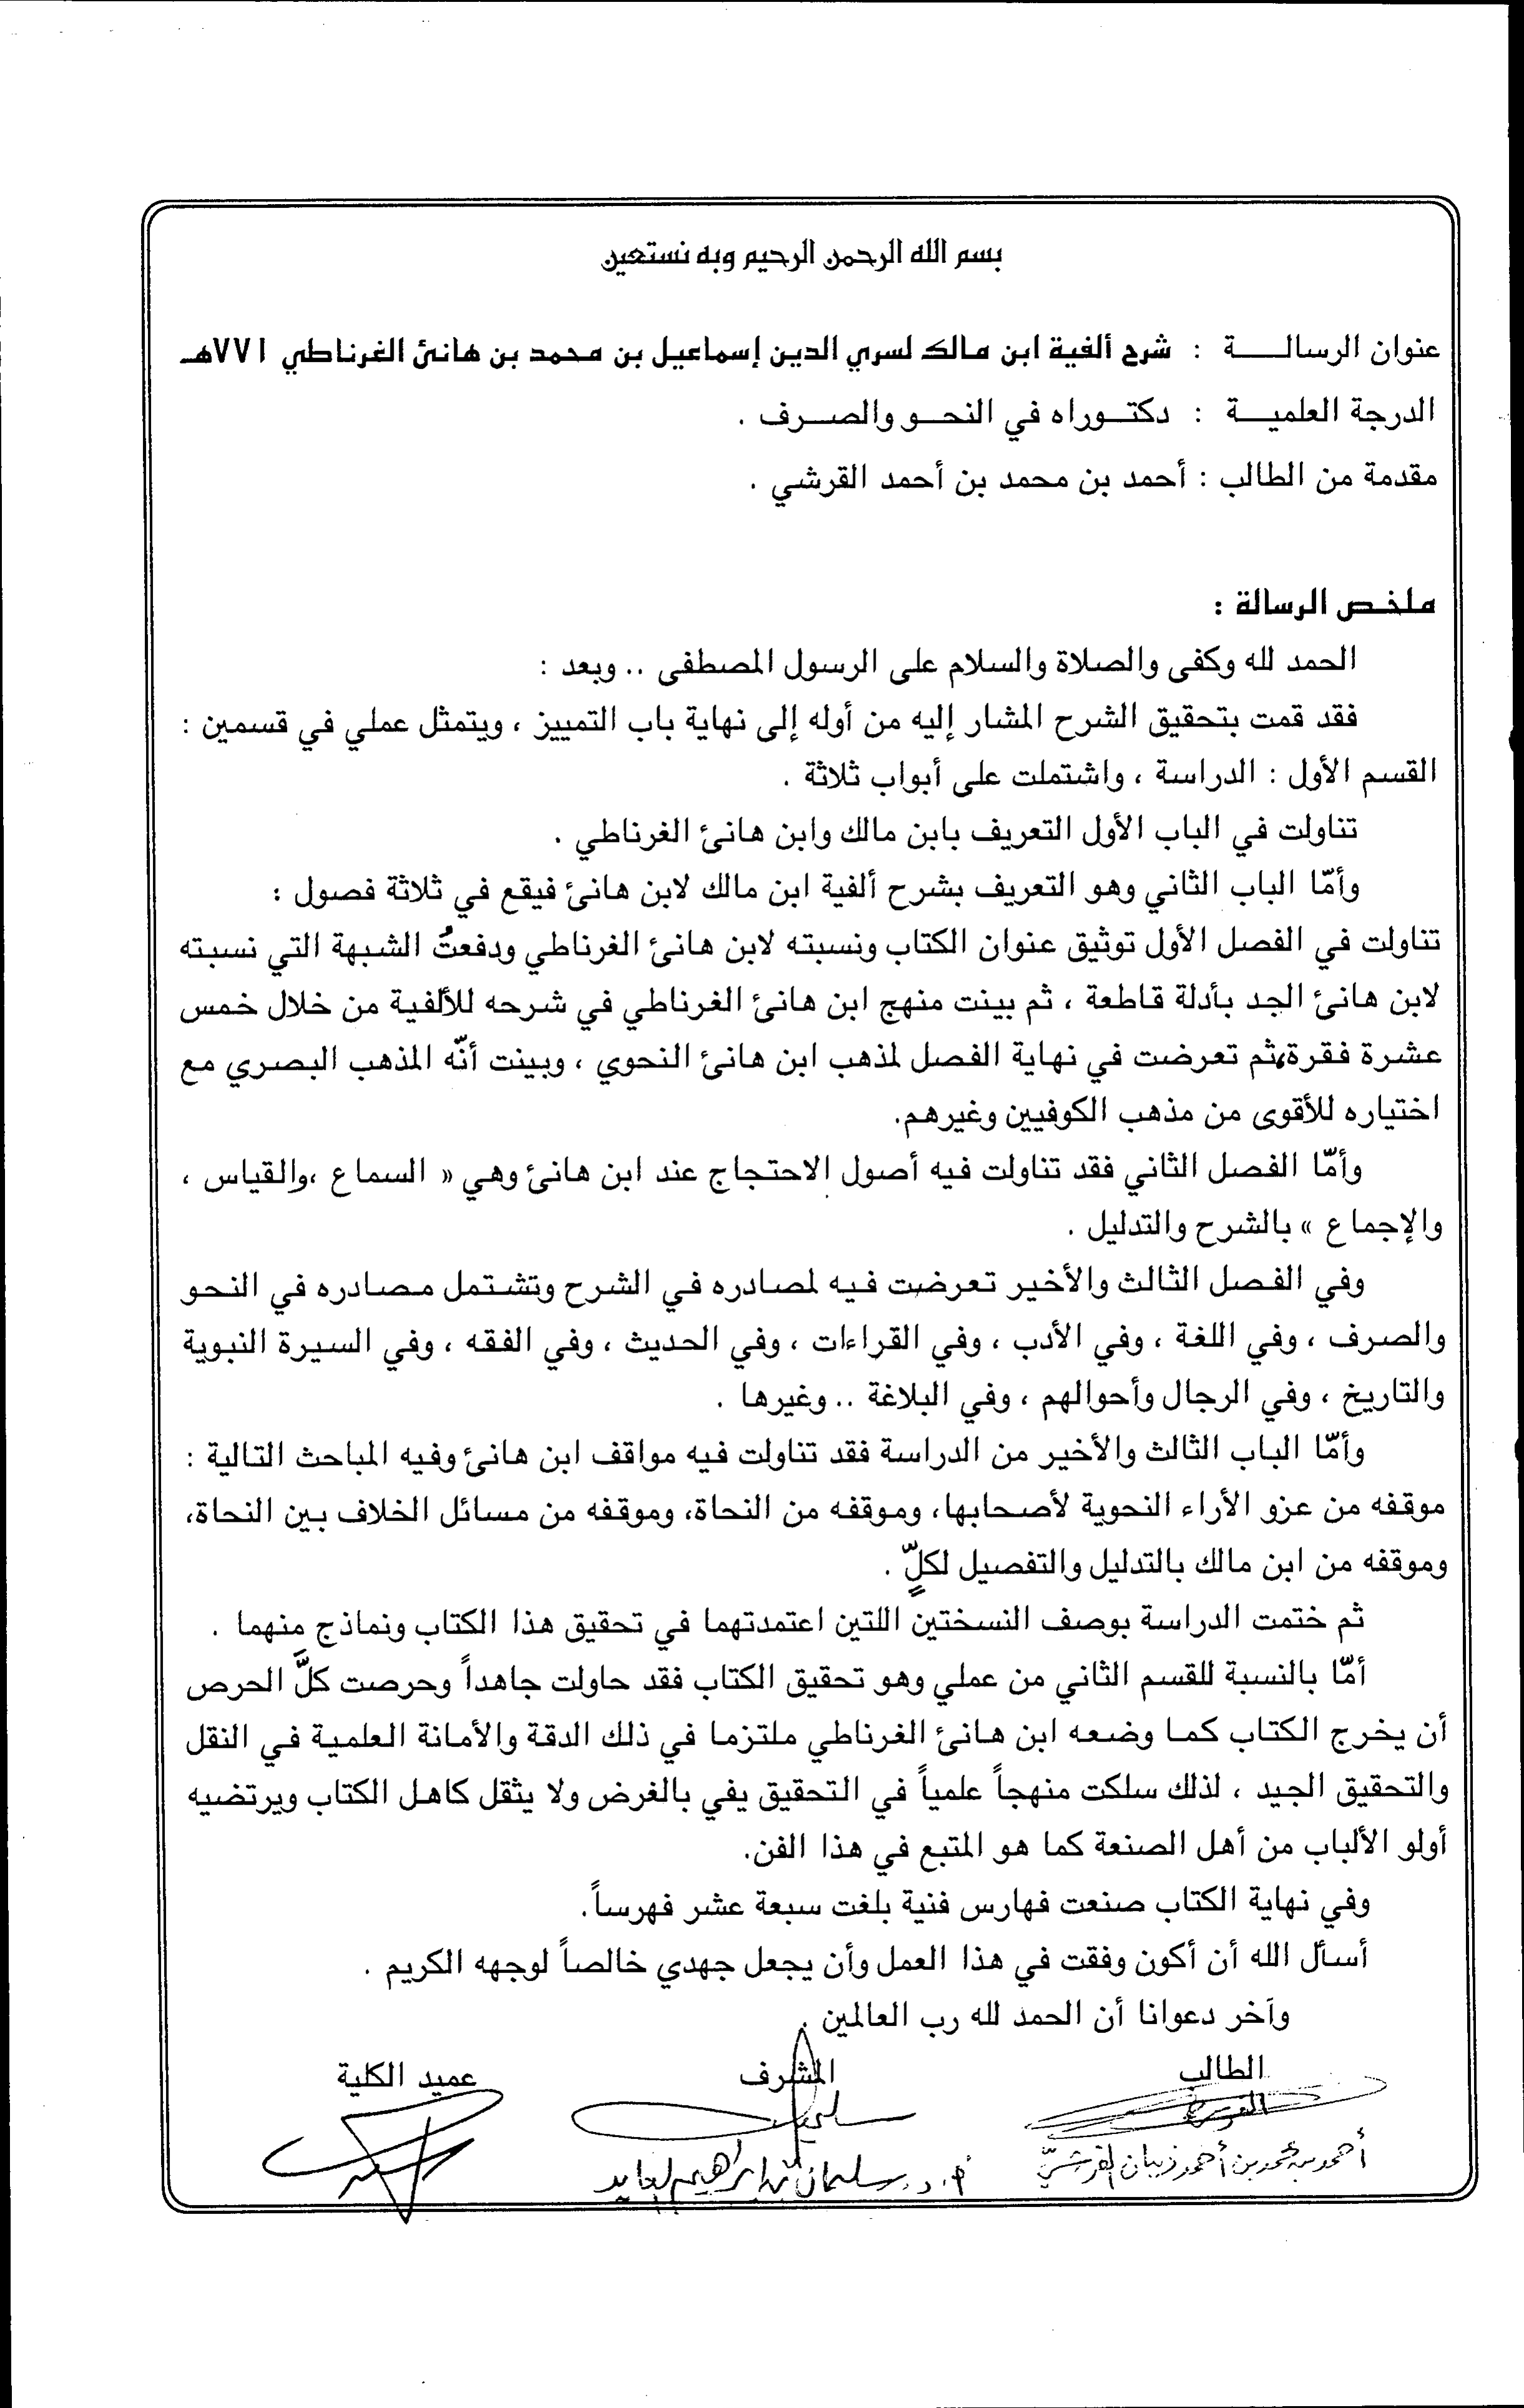 بسم الله الرحمن الرحيم وبه نستعين
عنوان الرسالة : شرح ألفية ابن مالك لسري الدين إسماعيل بن محمد بن هانئ الغرناطي ٧٧١هـ
الدرجة العلمية : دكتوراه في النحو والصرف .
مقدمة من الطالب : أحمد بن محمد بن أحمد القرشي .
ملخص الرسالة :
الحمد لله وكفى والصلاة والسلام على الرسول المصطفى .. وبعد :
فقد قمت بتحقيق الشرح المشار إليه من أوله إلى نهاية باب التمييز ، ويتمثل عملي في قسمين :
القسم الأول : الدراسة ، واشتملت على أبواب ثلاثة .
تناولت في الباب الأول التعريف بابن مالك وابن هانئ الغرناطي .
وأمّا الباب الثاني وهو التعريف بشرح ألفية ابن مالك لابن هانئ فيقع في ثلاثة فصول :
تناولت في الفصل الأول توثيق عنوان الكتاب ونسبته لابن هانئ الغرناطي ودفعتُ الشبهة التي نسبته
لابن هانئ الجد بأدلة قاطعة ، ثم بينت منهج ابن هانئ الغرناطي في شرحه للألفية من خلال خمس
عشرة فقرة،ثم تعرضت في نهاية الفصل لمذهب ابن هانئ النحوي ، وبينت أنّه المذهب البصري مع
اختياره للأقوى من مذهب الكوفيين وغيرهم.
وأمّا الفصل الثاني فقد تناولت فيه أصول الاحتجاج عند ابن هانئ وهي « السماع ،والقياس ،
والإجماع » بالشرح والتدليل .
وفي الفصل الثالث والأخير تعرضت فيه لمصادره في الشرح وتشتمل مصادره في النحو
والصرف ، وفي اللغة ، وفي الأدب ، وفي القراءات ، وفي الحديث ، وفي الفقه ، وفي السيرة النبوية
والتاريخ ، وفي الرجال وأحوالهم ، وفي البلاغة .. وغيرها .
وأمّا الباب الثالث والأخير من الدراسة فقد تناولت فيه مواقف ابن هانئ وفيه المباحث التالية :
موقفه من عزو الأراء النحوية لأصحابها، وموقفه من النحاة، وموقفه من مسائل الخلاف بين النحاة،
وموقفه من ابن مالك بالتدليل والتفصيل لكلٍّ .
ثم ختمت الدراسة بوصف النسختين اللتين اعتمدتهما في تحقيق هذا الكتاب ونماذج منهما .
أمّا بالنسبة للقسم الثاني من عملي وهو تحقيق الكتاب فقد حاولت جاهداً وحرصت كلَّ الحرص
أن يخرج الكتاب كما وضعه ابن هانئ الغرناطي ملتزما في ذلك الدقة والأمانة العلمية في النقل
والتحقيق الجيد ، لذلك سلكت منهجاً علمياً في التحقيق يفي بالغرض ولا يثقل كاهل الكتاب ويرتضيه
أولو الألباب من أهل الصنعة كما هو المتبع في هذا الفن.
وفي نهاية الكتاب صنعت فهارس فنية بلغت سبعة عشر فهرساً.
أسأل الله أن أكون وفقت في هذا العمل وأن يجعل جهدي خالصاً لوجهه الكريم .
وآخر دعوانا أن الحمد لله رب العالمين .
الطالب المشرف عميد الكلية
أحمد بن محمد بن أحمد زيبان القرشي أ.د. سليمان بن إبراهيم العايد